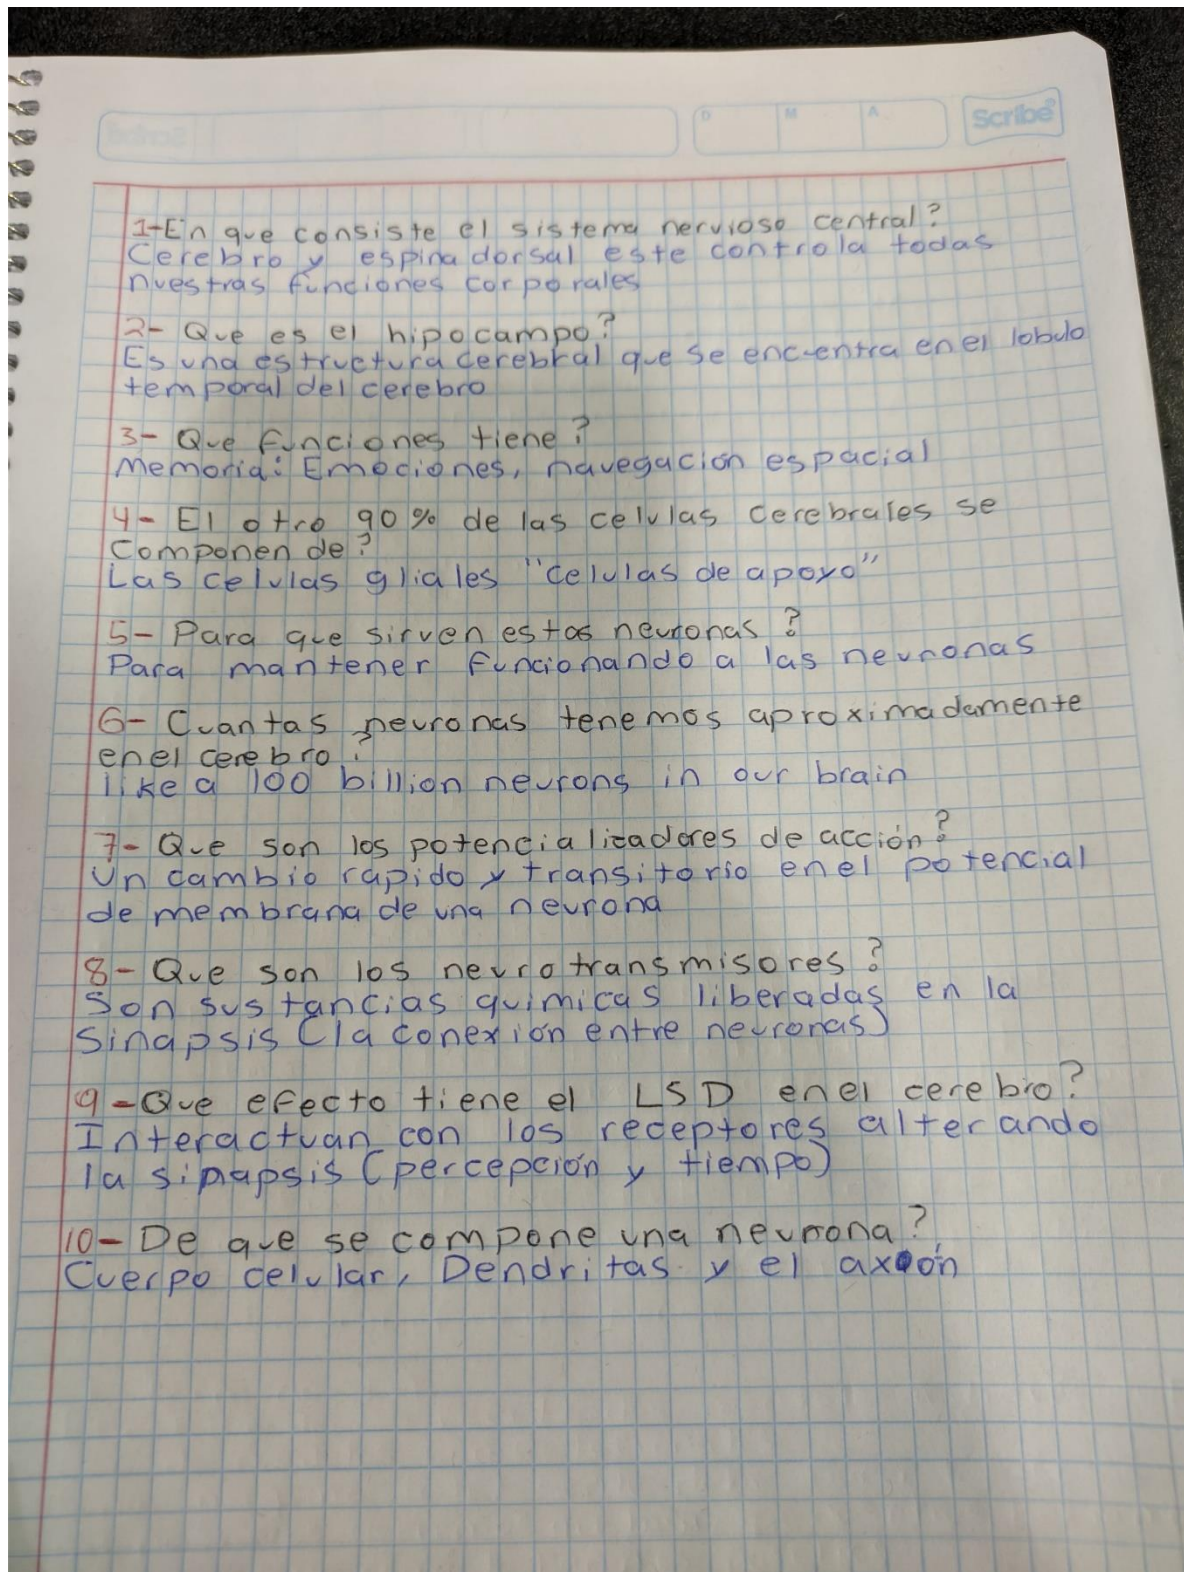 D M A Scribe
1-En que consiste el sistema nervioso central?
Cerebro y espina dorsal este controla todas
nuestras funciones corporales
2- Que es el hipocampo?
Es una estructura cerebral que se encuentra en el lobulo
temporal del cerebro
3- Que funciones tiene?
Memoria: Emociones, navegación espacial
4- El otro 90% de las celulas cerebrales se
componen de?
Las celulas gliales "celulas de apoyo"
5- Para que sirven estas neuronas?
Para mantener funcionando a las neuronas
6- Cuantas neuronas tenemos aproximadamente
en el cerebro?
like a 100 billion neurons in our brain
7- Que son los potencializadores de acción?
Un cambio rapido y transitorio en el potencial
de membrana de una neurona
8- Que son los neurotransmisores?
Son sustancias quimicas liberadas en la
sinapsis (la conexión entre neuronas)
9-Que efecto tiene el LSD en el cerebro?
Interactuan con los receptores alterando
la sinapsis (percepción y tiempo)
10- De que se compone una neurona?
Cuerpo celular, Dendritas y el axón